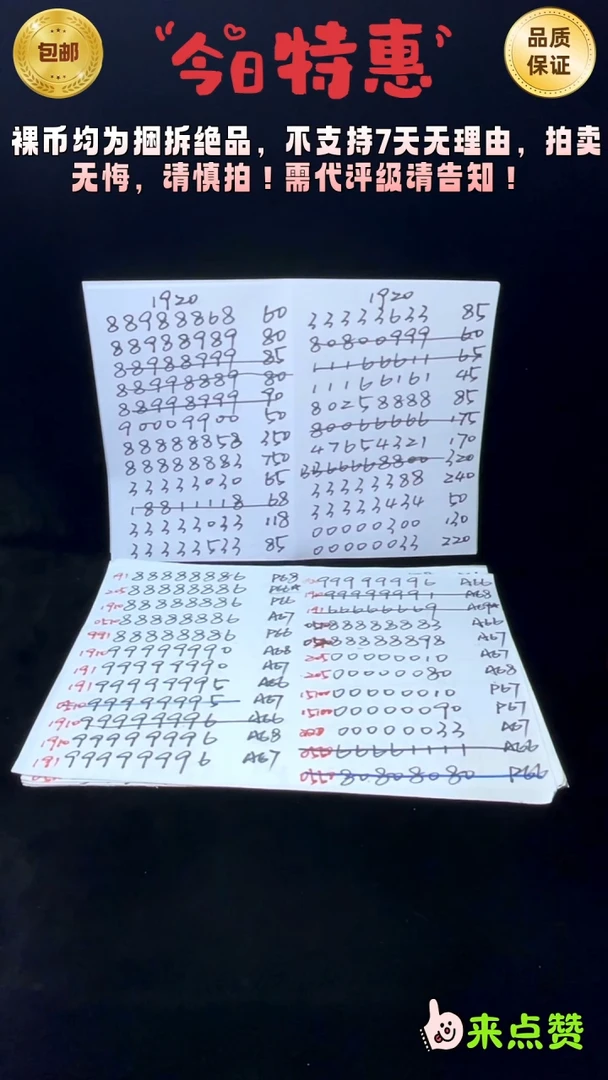 包邮
今日特惠
品质
保证
裸币均为捆拆绝品，不支持7天无理由，拍卖
无悔，请慎拍！需代评级请告知！
1920
88988868 60
88988989 80
88988999 85
88998889 80
88998999 90
90009900 50
88888858 350
88888883 750
33333030 65
18811118 68
33333033 118
33333533 85
1920
33333633 85
80800999 60
11166611 65
11166161 45
80258888 85
80066666 175
47654321 170
33666688800 320
33333388 240
33333434 50
00000300 130
00000033 220
191 88888886 P68
205 88888886
1910 88888886 P66
0510 88888886 A67
991 88888886 P66
1910 99999990 A68
191 99999990 A67
191 99999995 A66
0510 99999995 A67
1910 99999996 A66
1910 99999996 A68
191 99999996 A67
99999996 A66
99999991 A68
191 66666669
88888883 A66
88888898 A67
205 00000010 A67
205 00000080 A68
1510 00000010 P67
1510 00000090 P67
00000033 A67
66661111 A66
0510 80808080 P66
来点赞